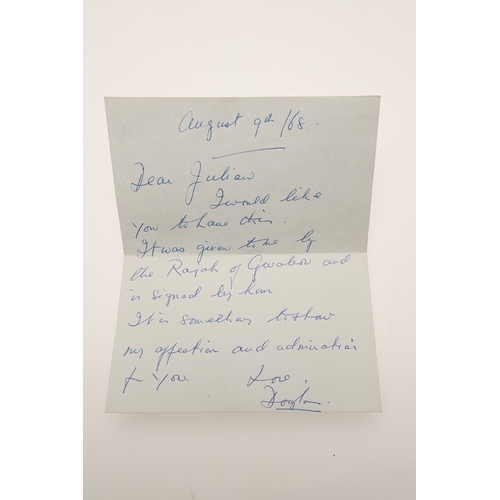 August 9th /68.
Dear Julian
I would like
you to have this.
It was given to me by
the Rajah of Gwalior and
is signed by him.
It is something to show
my affection and admiration
for you
Love,